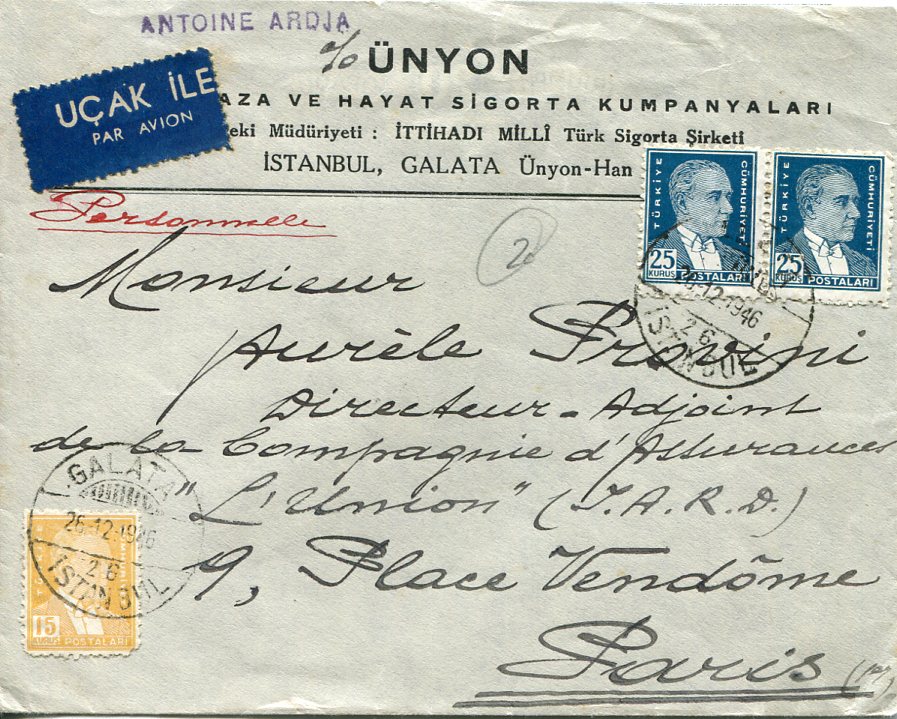 ANTOINE ARDJA
c/o ÜNYON
UÇAK İLE
PAR AVION
AZA VE HAYAT SİGORTA KUMPANYALARI
eki Müdüriyeti : İTTİHADI MİLLÎ Türk Sigorta Şirketi
İSTANBUL, GALATA Ünyon-Han
TÜRKİYE CÜMHURİYETİ
25 KURUŞ POSTALARI
TÜRKİYE CÜMHURİYETİ
25 KURUŞ POSTALARI
26-12-1946
26
İSTANBUL
Personnelle
2
Monsieur
Aurèle
Directeur-Adjoint
de la Compagnie d'Assurances
"L'Union" (I.A.R.D.)
9, Place Vendôme
Paris
GALATA
26-12-1946
26
İSTANBUL
15 KURUŞ POSTALARI